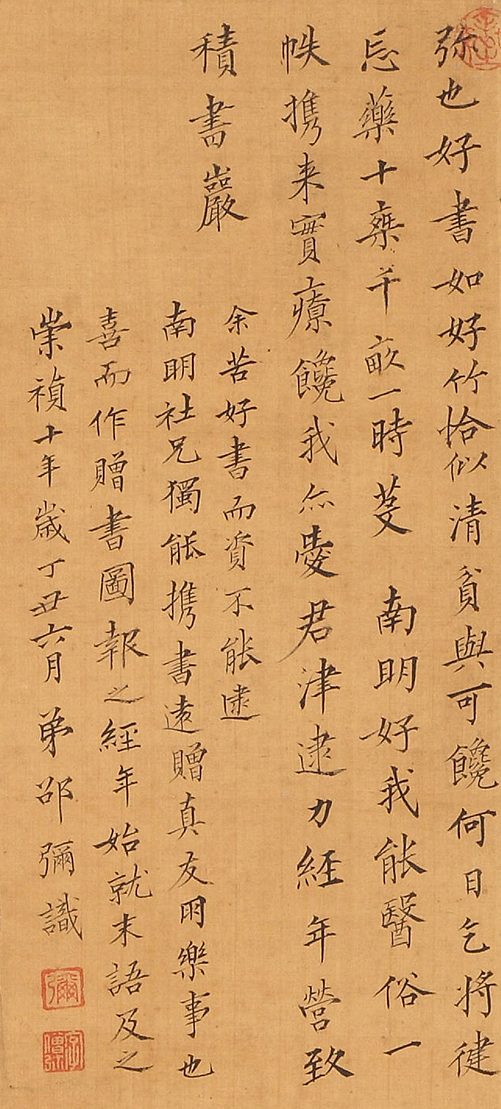 弥也好書如好竹恰似清貧與可饞何日乞將徤
忘藥十椉千畝一時芟 南明好我能醫俗一
帙携来實療饞我亦愛君津逮力經年營致
積書巖
余苦好書而資不能逮
南明社兄獨能携書遠贈真友朋樂事也
喜而作贈書圖報之經年始就末語及之
崇禎十年歲丁丑六月弟邵彌識